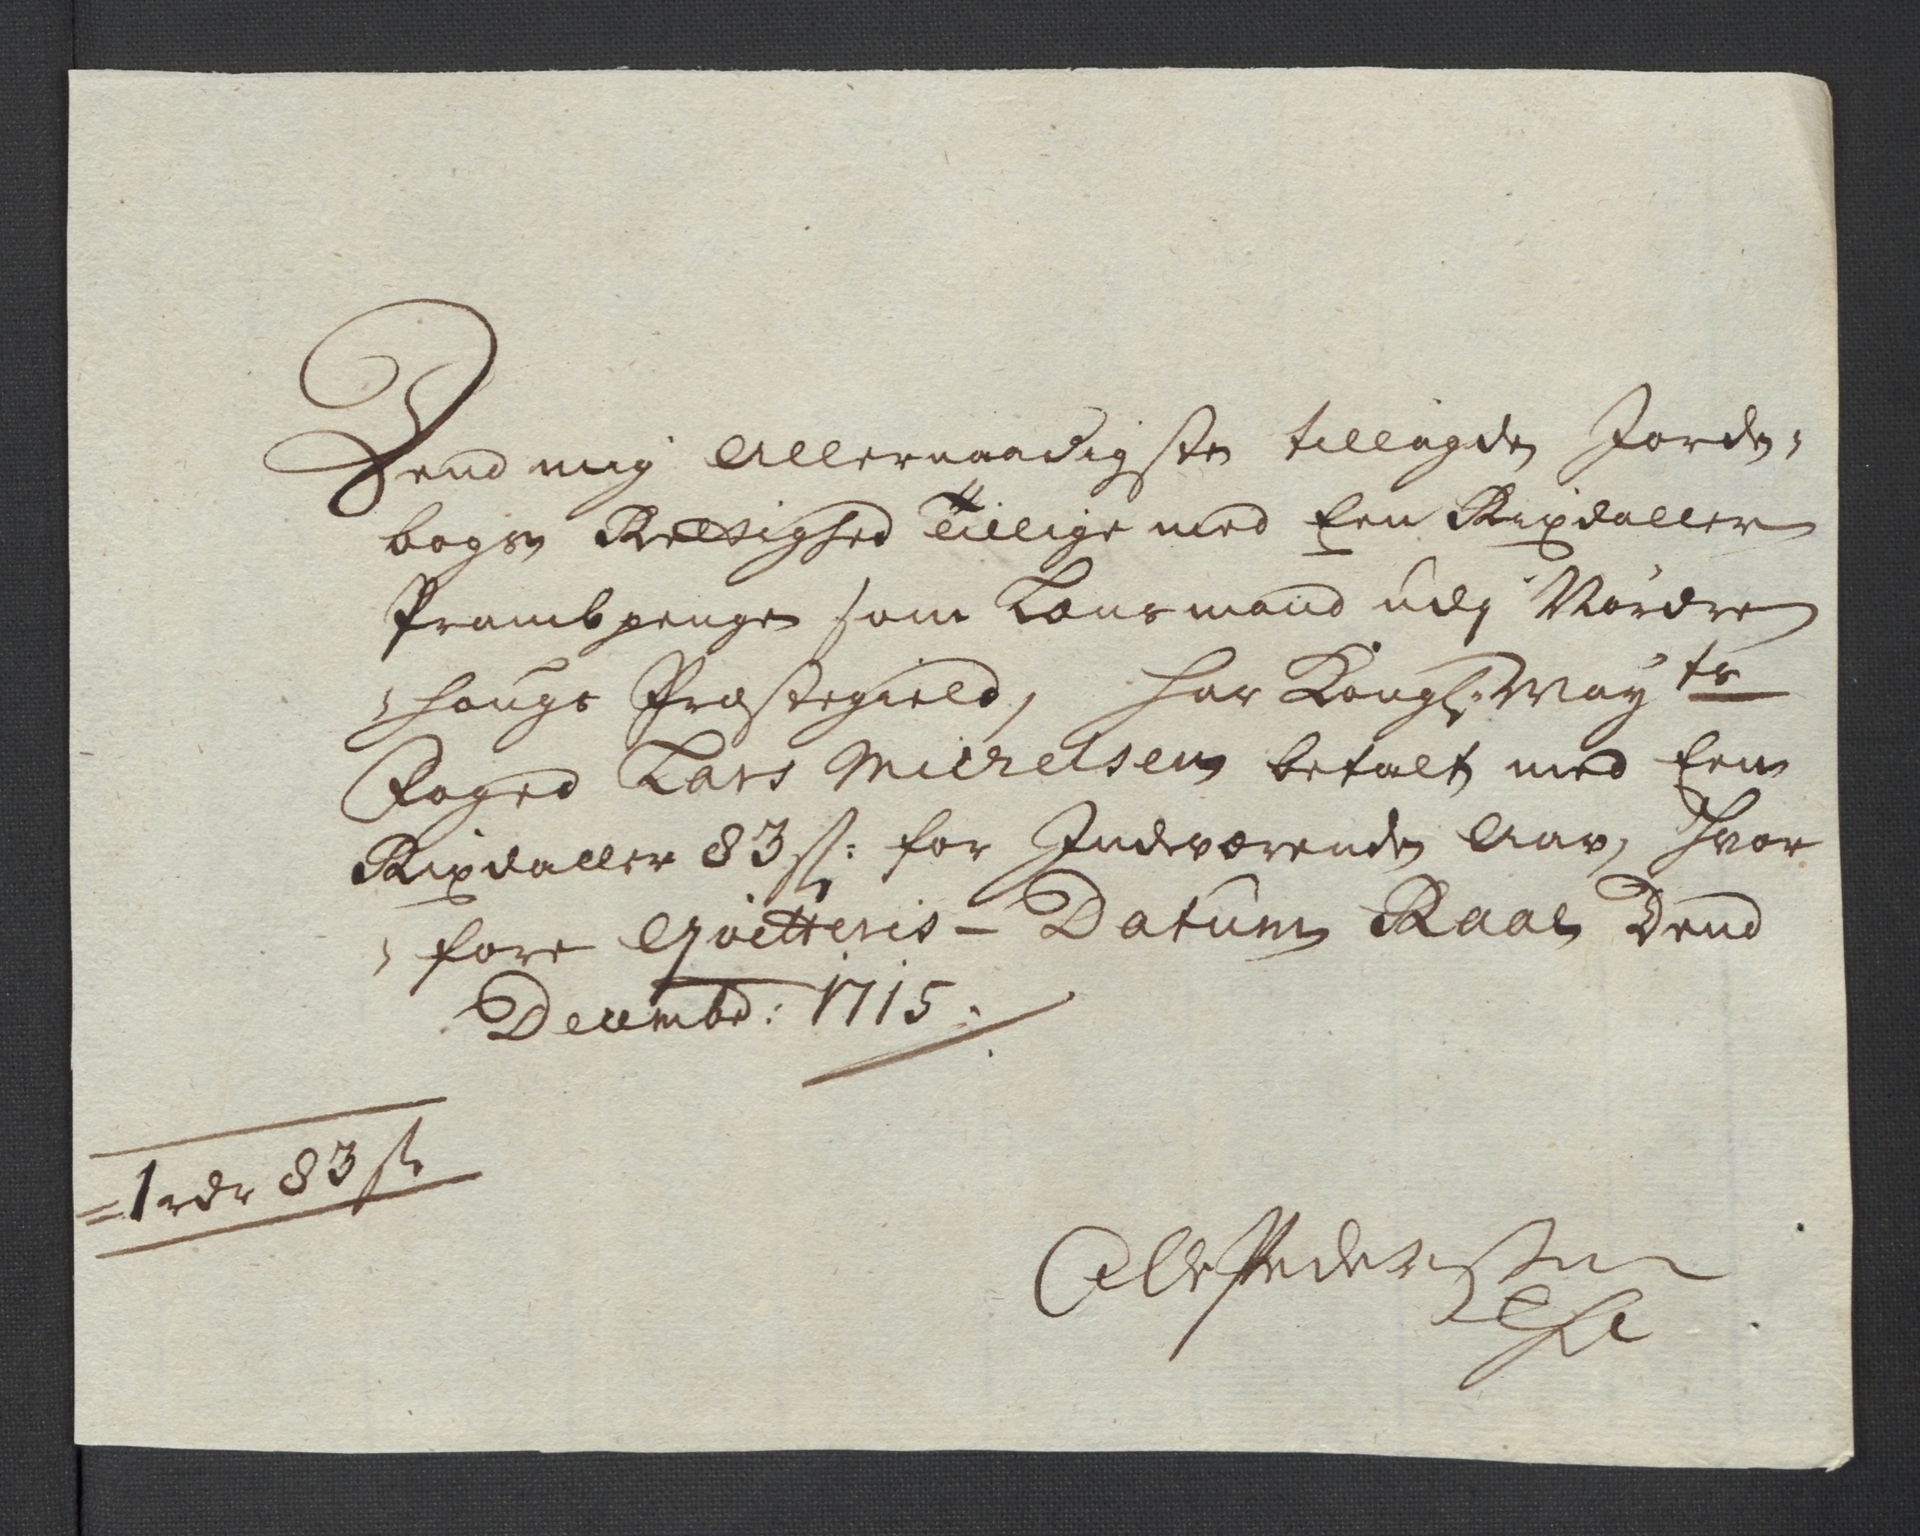 Dend mig Allernaadigste tillagde Jorde-
bogs Rettighed Tillige med Een Rixdaller
Prambpenge som Lensmand udj Nordre
-hougs Præstegield, har Kongl: May ts
Foged Lars Michelsen betalt med Een
Rixdaller 83 s: for Indeværende Aar, hvor
-fore Qvitteris - Datum Raae Dend
Decembr: 1715.
1 rdr 83 s
Ole Pedersen